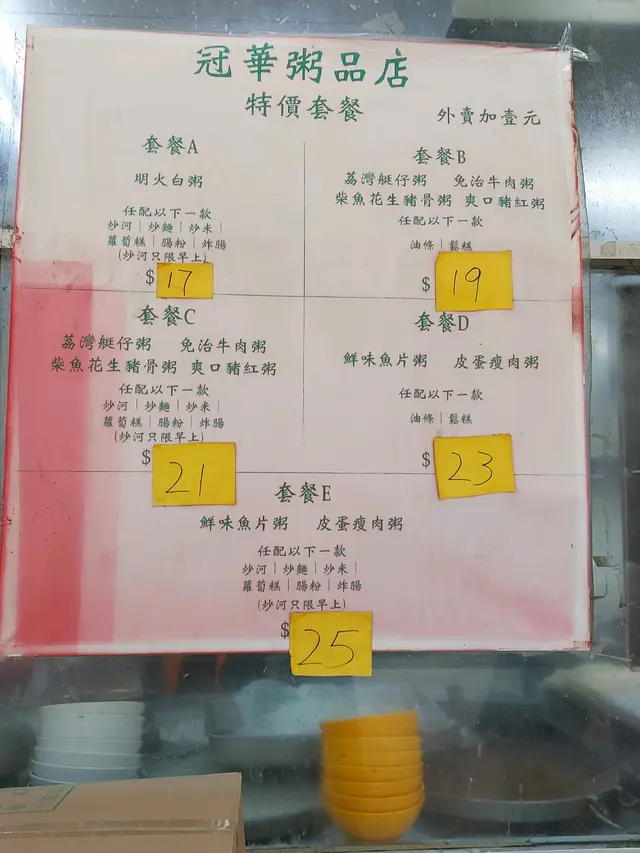 冠華粥品店
特價套餐
外賣加壹元
套餐A
明火白粥
任配以下一款
炒河｜炒麵｜炒米｜
蘿蔔糕｜腸粉｜炸腸
(炒河只限早上)
$17
套餐B
荔灣艇仔粥 免治牛肉粥
柴魚花生豬骨粥 爽口豬紅粥
任配以下一款
油條｜鬆糕
$19
套餐C
荔灣艇仔粥 免治牛肉粥
柴魚花生豬骨粥 爽口豬紅粥
任配以下一款
炒河｜炒麵｜炒米｜
蘿蔔糕｜腸粉｜炸腸
(炒河只限早上)
$21
套餐D
鮮味魚片粥 皮蛋瘦肉粥
任配以下一款
油條｜鬆糕
$23
套餐E
鮮味魚片粥 皮蛋瘦肉粥
任配以下一款
炒河｜炒麵｜炒米｜
蘿蔔糕｜腸粉｜炸腸
(炒河只限早上)
$25